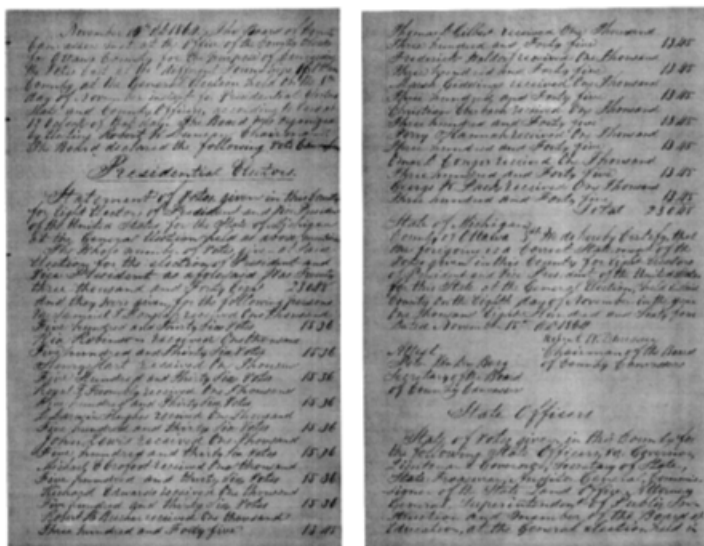 November 15th 1864. The Board of County
Canvassers met at the Office of the County Clerk
for Ottawa County for the purpose of
the Votes cast at the different Townships
County at the General Election held on the 8th
day of November
State and County Officers
by Robert W. Duncan, Chairman
The Board declared the following
Presidential Electors
Statement of Votes given in this County
for Eight Electors of President and Vice President
of the United States for the State of Michigan
at the General Election held as above
The Whole number of Votes given for
Electors for the election of President and
Vice President as aforesaid was Twenty
three thousand and Forty Eight 23048
and they were given for the following persons
received One thousand
Five hundred and Thirty Six Votes 1536
Robinson received One thousand
Five hundred and thirty Six Votes 1536
Hart received One Thousand
Five Hundred and thirty Six Votes 1536
received One Thousand
Five hundred and Thirty Six Votes 1536
Hughes received One Thousand
Five hundred and thirty Six Votes 1536
John Lewis received One Thousand
Five hundred and thirty Six Votes 1536
Michael E Crofoot received One thousand
Five hundred and thirty Six Votes 1536
Richard Edwards received One thousand
Five hundred and thirty Six Votes 1536
Robert R Beecher received One thousand
Three hundred and Forty five 1345
Thomas D Gilbert received One Thousand
Three hundred and Forty five 1345
Frederick Waldorf received One thousand
Three hundred and Forty five 1345
Marsh Giddings received One thousand
Three hundred and Forty five 1345
Christian Eberbach received One Thousand
Three hundred and Forty five 1345
Perry Hannah received One Thousand
Three hundred and Forty five 1345
Omar D Conger received One Thousand
Three hundred and Forty five 1345
George W Pack received One Thousand
Three hundred and Forty five 1345
Total 23048
State of Michigan
County of Ottawa We do hereby Certify that
the foregoing is a Correct Statement of the
Votes given in this County for eight Electors
of President and Vice President of the United States
for this State at the General Election, held in this
County on the Eighth day of November in the year
One thousand Eight Hundred and Sixty four
Dated November 15th 1864
Robert W. Duncan
Attest Chairman of the Board
of County Canvassers
Secretary of the Board
of County Canvassers
State Officers
State of Votes given in this County for
the following State Officers, viz. Governor,
Lieutenant Governor, Secretary of State,
State Treasurer, Auditor General, Commis
sioner of the State Land Office, Attorney
General, Superintendent of Public In
struction and Member of the Board of
Education, at the General election held in